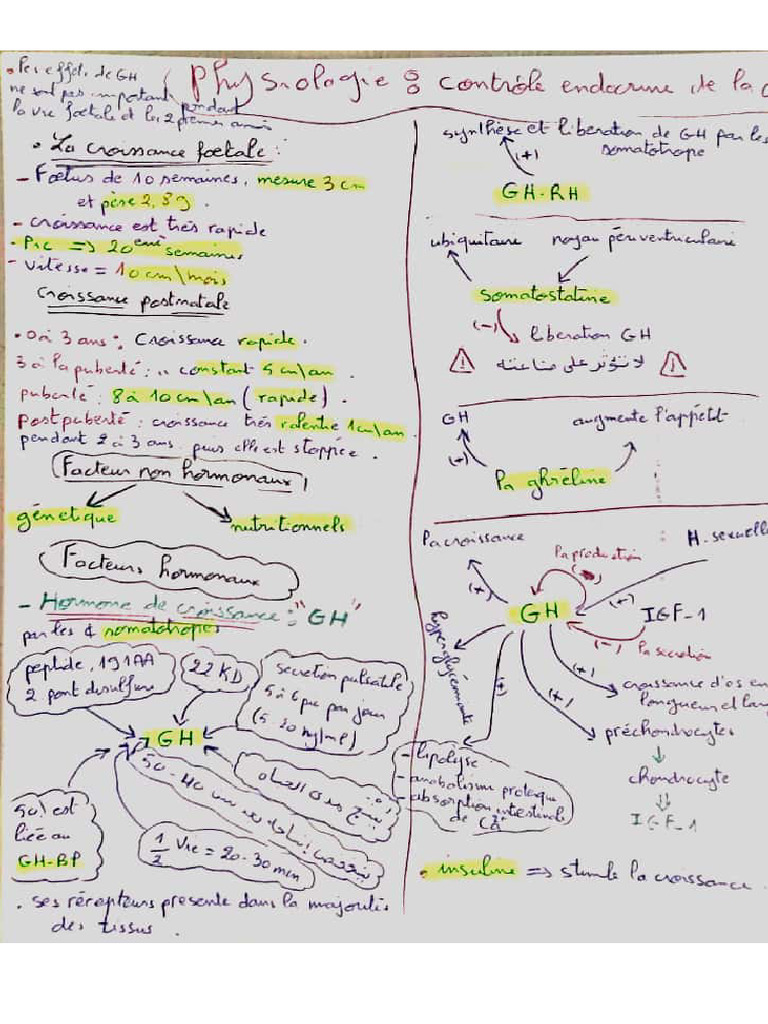 Physiologie : contrôle endocrine de la c
• Les effets de GH
ne sont pas importants pendant
la vie foetale et les 2 premiers années
• La croissance foetale :
- Foetus de 10 semaines, mesure 3 cm
et pèse 2,3 g.
- croissance est très rapide
• Pic => 20ème semaines
- Vitesse = 10 cm/mois
Croissance postnatale
• 0 à 3 ans : Croissance rapide.
3 à la puberté : constant 5 cm/an.
puberté : 8 à 10 cm/an (rapide).
Post puberté : croissance très ralentie 1 cm/an
pendant 2 à 3 ans puis elle est stoppée.
Facteur non hormonaux
génetique
nutritionnels
Facteurs hormonaux
- Hormone de croissance : "GH"
par les somatotropes
peptide, 191 AA
2 pont disulfure
22 KD
secretion pulsatile
5 à 6 pic par jour
GH
ينتج مدى الحياة
50% est
liée au
GH-BP
1/2 vie = 20-30 min
• ses récepteurs presente dans la majorité
des tissus.
synthèse et libération de GH par les
somatotrope
(+)
GH-RH
ubiquitaire noyau périventriculaire
somatostatine
(-) libération GH
لا تؤثر على صناعته
GH augmente l'appétit
(+)
la ghréline
la croissance
la production
H. sexuelle
(+) (-)
GH (+) IGF-1
(-) la secretion
hyperglycémiante
(+) (+) (+)
croissance d'os en
longueur et lar
préchondrocytes
chondrocyte
IGF-1
- lipolyse
- anabolisme protéique
- absorption intestinale
de Ca
• insuline => stimule la croissance.